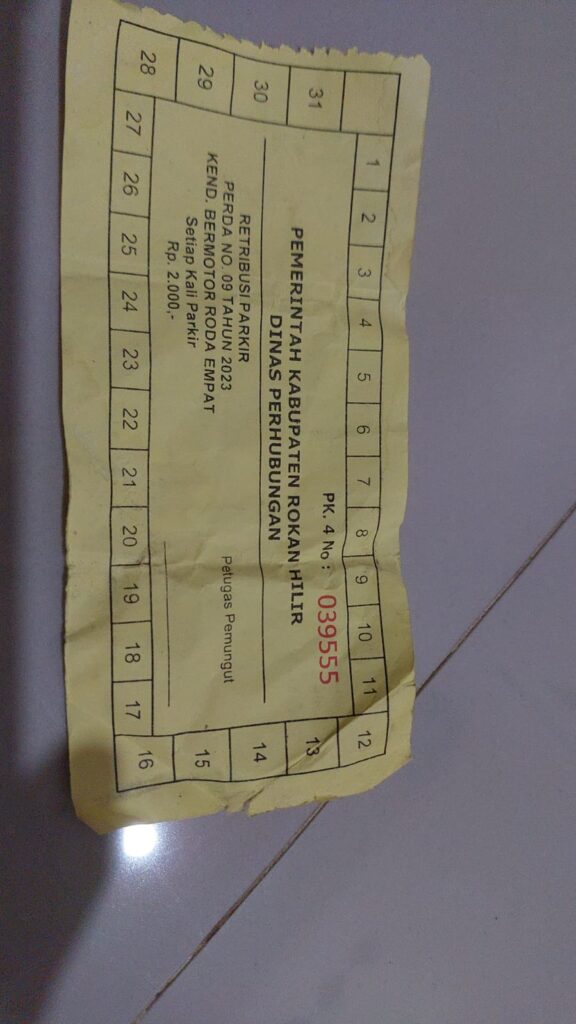 1 2 3 4 5 6 7 8 9 10 11 12
PK. 4 No : 039555
PEMERINTAH KABUPATEN ROKAN HILIR
DINAS PERHUBUNGAN
RETRIBUSI PARKIR
PERDA NO. 09 TAHUN 2023
KEND. BERMOTOR RODA EMPAT
Setiap Kali Parkir
Rp. 2.000,-
Petugas Pemungut
13
14
15
16
31
30
29
28 27 26 25 24 23 22 21 20 19 18 17